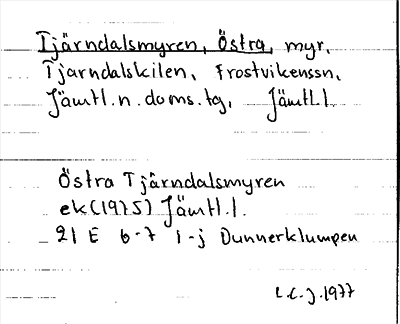 Tjärndalsmyren, Östra, myr,
Tjärndalskilen, Frostvikenssn,
Jämtl.n.doms.tg, Jämtl.l
Östra Tjärndalsmyren
ek(1975) Jämtl.l.
21 E 6-7 i-j Dunnerklumpen
L.C.J.1977